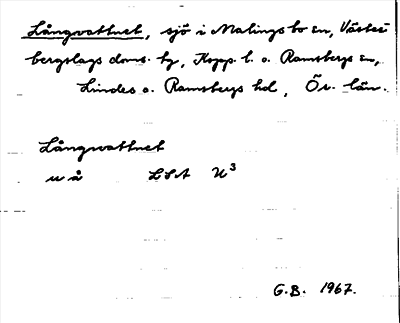 Långvattnet, sjö i Malingsbo sn, Väster-
bergslags doms. hg, Kopp. l. o. Ramsbergs sn,
Lindes o. Ramsbergs hd, Ör. län.
Långvattnet
u å LSA U³
G.B. 1967.